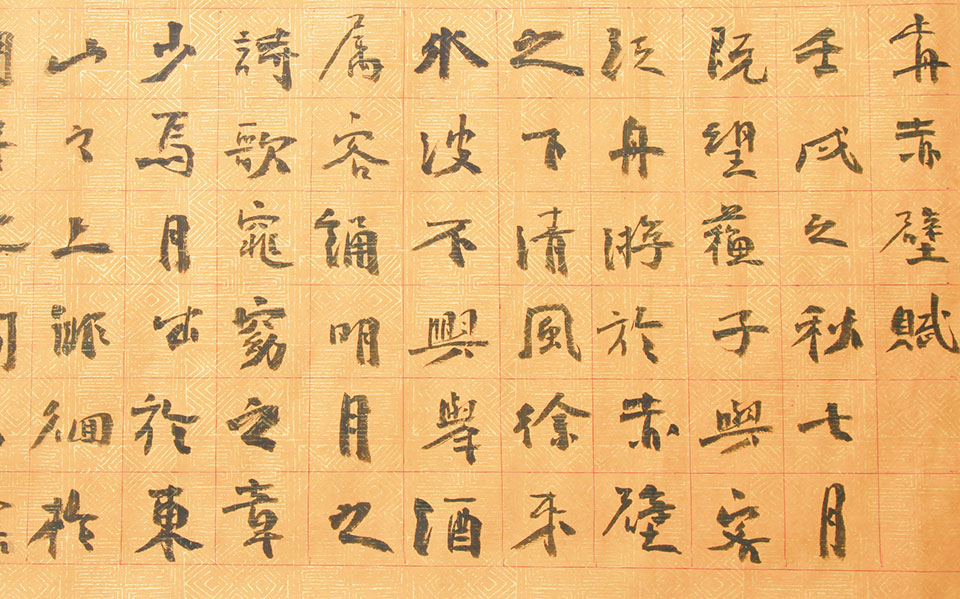 前赤壁賦
壬戌之秋七月
既望蘇子與客
泛舟游於赤壁
之下清風徐來
水波不興舉酒
属客誦明月之
詩歌窕窈之章
少焉月出於東
山之上徘徊於